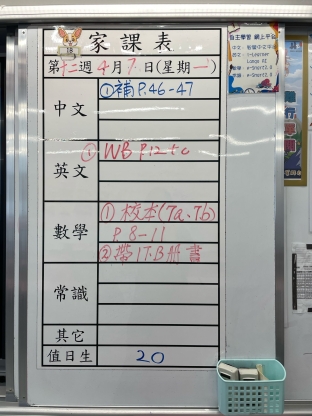 家課表
第十二週4月7日(星期一)
中文
①補P.46-47
英文
① WB P.12 + c
數學
① 校本(7a、7b)
P.8-11
② 帶1T.B冊書
常識
其它
值日生
20
自主學習 網上平台